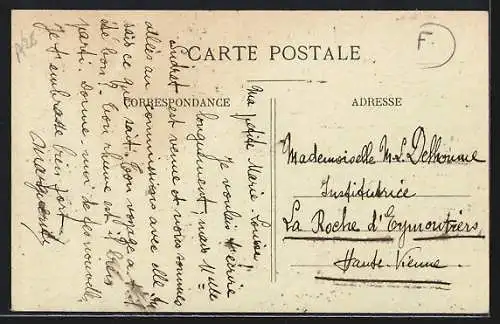 CARTE POSTALE
F
CORRESPONDANCE
ADRESSE
Ma petite Marie Louise
Je voulais t'écrire
longuement, mais Mlle
est venue et nous sommes
allées au commissions avec elle
sais ce que c'est. Bon voyage a
de bon? bon rhume est il
parti. Donne-moi de tes nouvelles
Je t'embrasse bien fort
Mademoiselle M. L. Delhoume
Institutrice
La Roche d'Eymoutiers
Haute-Vienne